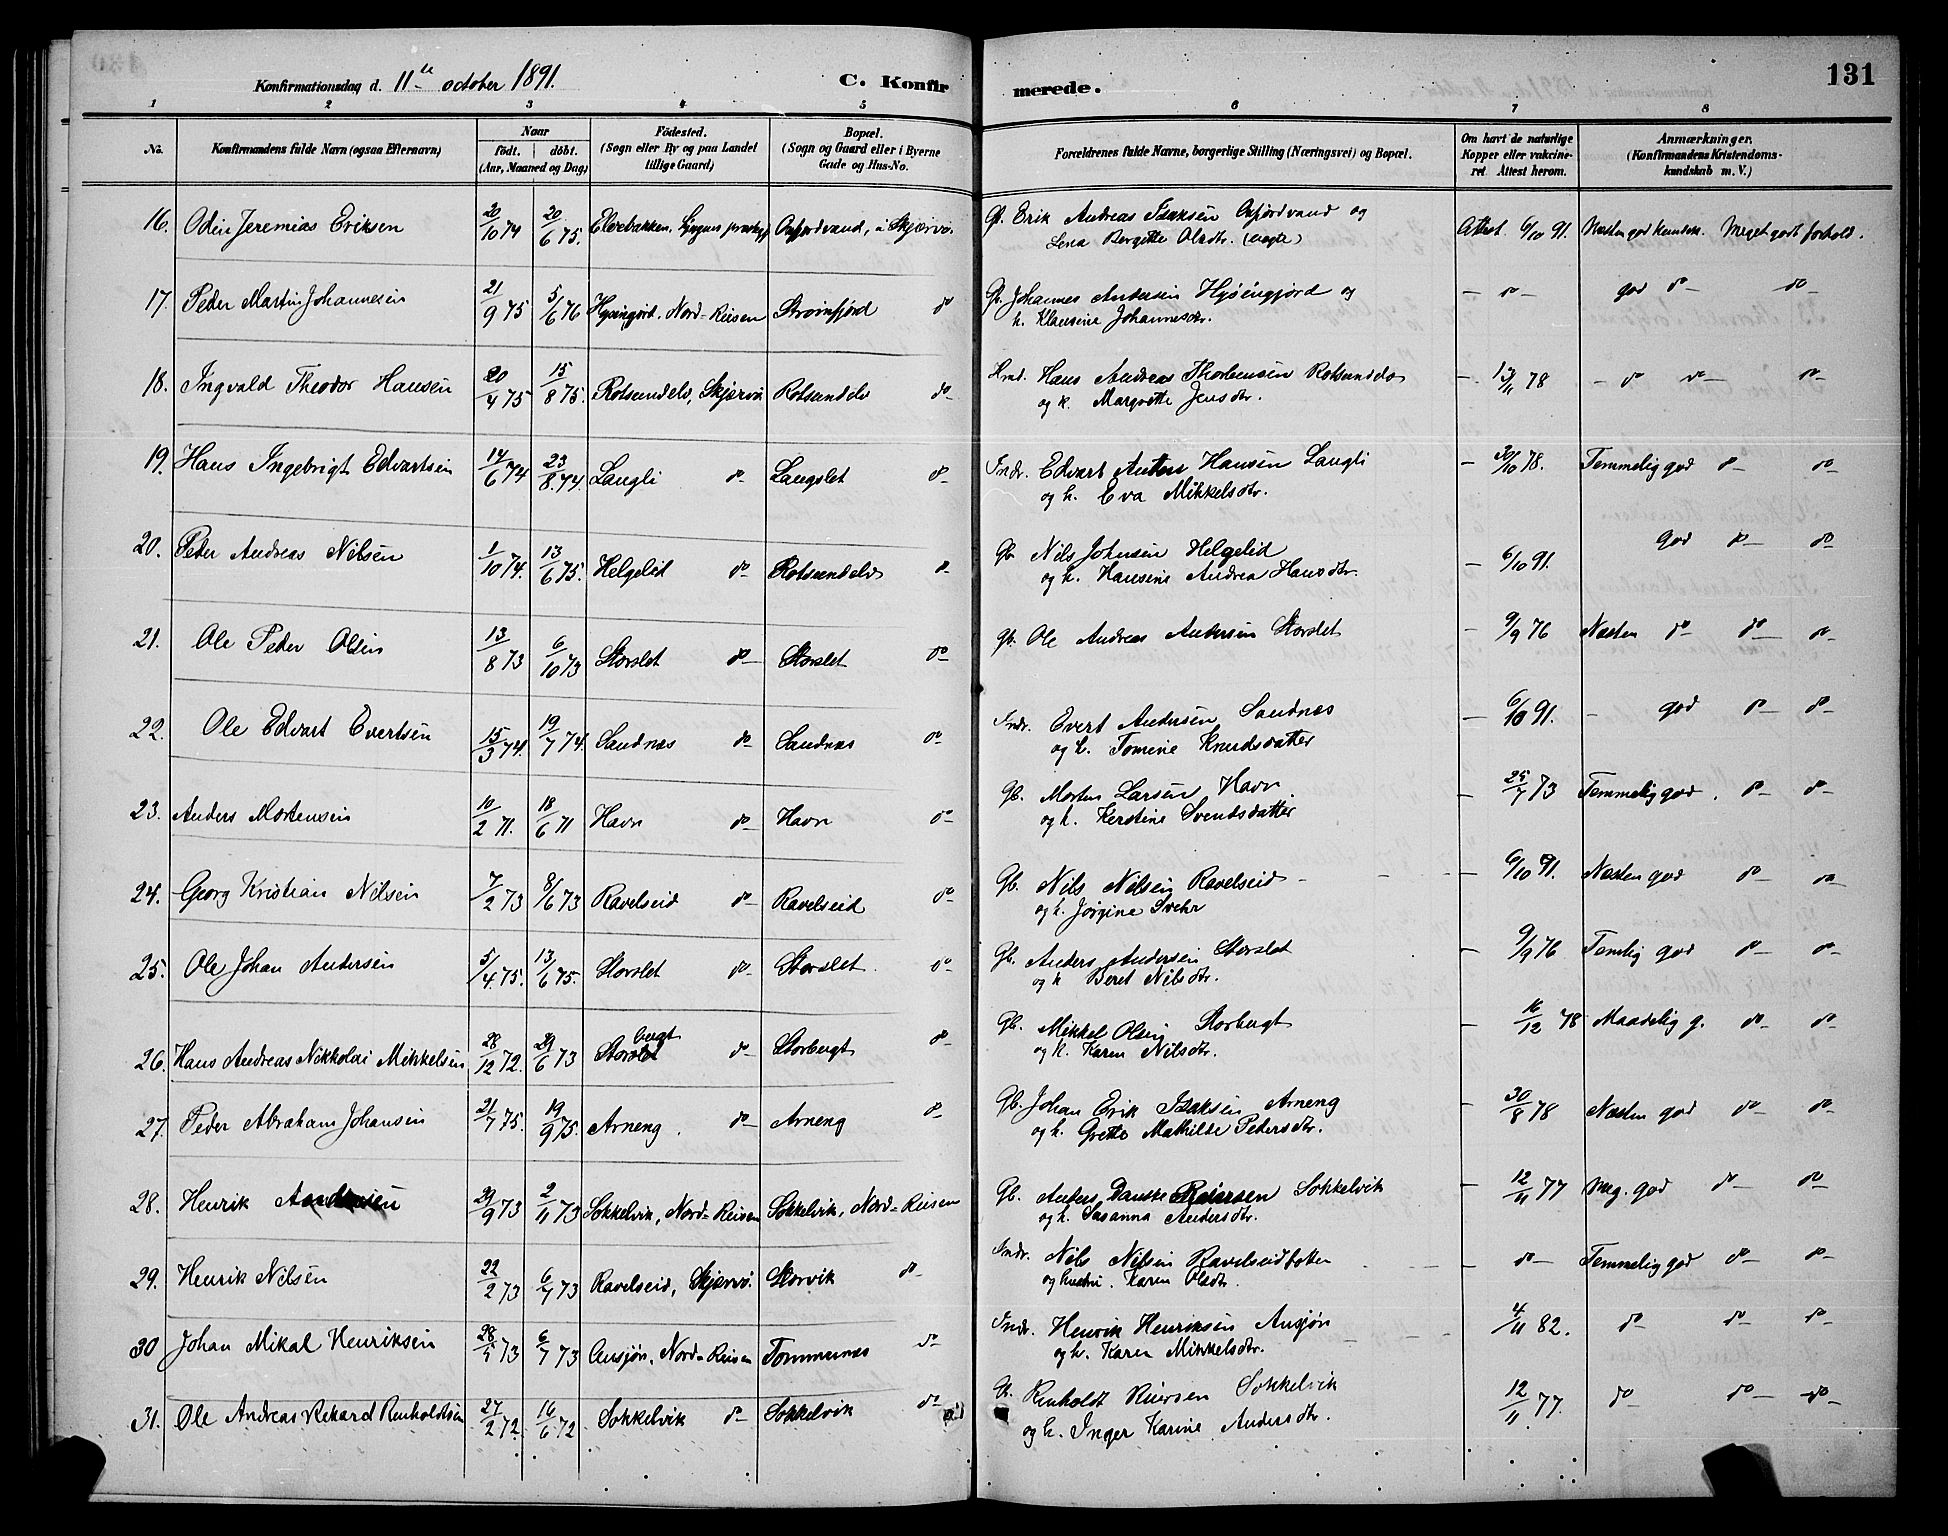 Konfirmationsdag d. 11te october 1891. C. Konfirmerede. 131
1 2 3 4 5 6 7 8
No. Konfirmandens fulde Navn (ogsaa Efternavn) Naar født. døbt. (Aar, Maaned og Dag) Fødested. (Sogn eller By og paa Landet tillige Gaard) Bopæl. (Sogn og Gaard eller i Byerne Gade og Hus-No. Forældrenes fulde Navne, borgerlige Stilling (Næringsvei) og Bopæl. Om havt de naturlige Kopper eller vakcineret. Attest herom. Anmærkninger. (Konfirmandens Kristendomskundskab m. V.)
16. Odin Jeremias Eriksen 20/10 74 20/6 75. Elvebakken, Lyngens Oxfjordvand, i Skjervø. Gb. Erik Andreas Isaksen Oxfjordvand og Attest 6/10 91. Næsten god kundsk. Meget godt forhold.
Lena Bergitte Olsdtr. (ægte)
17. Peder Martin Johannesen 21/9 75 5/6 76 Nord-Reisen Straumfjord do Gb. Johannes Andersen og – do – god do – do –
h. Klausine Johannesdtr.
18. Ingvald Theodor Hansen 20/4 75 15/8 75. Rotsundelv, Skjervø Rotsundelv do – Hmd. Hans Andreas Thorbensen Rotsundelv – 13/11 78 – do do – do –
og k. Margrethe Jensdtr.
19. Hans Ingebrigt Edvartsen 14/6 74 23/8 74. Langli do – Langslet do – Indr. Edvart Anton Hansen Langli – 30/10 78. Temmelig god do – do –
og h. Eva Mikkelsdtr.
20. Peder Andreas Nilsen 1/10 74. 13/6 75. Helgelid do – Rotsundelv do – Gb Nils Johnsen Helgelid – 6/10 91. god do – do
og h. Hansine Andrea Hansdtr.
21. Ole Peder Olsen 13/8 73 6/10 73 Storslet do – Storslet do – gb. Ole Andreas Andersen Storslet – 9/9 76 Næsten do – do – do –
22. Ole Edvart Evertsen 15/3 74. 19/7 74. Sandnæs do – Sandnæs do – Indr. Evert Andersen Sandnæs – 6/10 91. – god do – do –
og h. Tomine Knudsdatter
23. Anders Mortensen 10/2 71. 18/6 71 Havn do – Havn do – Gb. Morten Larsen Havn. – 25/7 73 Temmelig god. do – do –
og h. Kerstine Svendsdatter
24. Georg Kristian Nilsen 7/2 73 8/6 73 Ravelseid do – Ravelseid do Gb. Nils Nilsen Ravelseid – – 6/10 91. Næsten god do – do –
og h. Jørgine Svehr
25. Ole Johan Andersen 5/4 75. 13/6 75. Storslet do – Storslet. do – Gb. Anders Andersen Storslet – 9/9 76 Temlig god do – do –
og k Beret Nilsdtr.
26. Hans Andreas Nikkolai Mikkelsen 28/12 72. 29/6 73 Storbergt do – Storbergt do – Gb. Mikkel Olsen Storbergt – 16/12 78 Maadelig g. do – do –
og k. Karen Nilsdtr.
27. Peder Abraham Johansen 21/7 75. 19/9 75. Arneng. do – Arneng do – Gb. Johan Erik Isaksen Arneng – 30/8 78 Næsten god do – do –
og h. Grette Mathilde Pedersdtr.
28. Henrik Andersen 29/9 73 2/11 73 Sokkelvik, Nord-Reisen Sokkelvik, Nord-Reisen Gb. Anders Danske Reiersen Sokkelvik – 12/11 77 Meg. god do – do –
og h. Susanna Andersdtr.
29. Henrik Nilsen 22/2 73 6/7 73 Ravelseid, Skjervø. Storvik do – Indr. Nils Nilsen Ravelseidbotten – do – Temmelig god do – do –
og hustru. Karen Olsdtr.
30 Johan Mikal Henriksen 28/5 73 6/7 73 Ausjøn, Nord-Reisen Tommernæs do – Indr. Henrik Henriksen Ausjøn 4/11 82. do do – do –
og h. Karen Mikkelsdtr.
31. Ole Andreas Rikard Renholdtsen 27/2 72. 16/6 72 Sokkelvik do – Sokkelvik do – Renholdt Riersen Sokkelvik 12/11 77. do do – do –
og h. Inger Karine Andersdtr.